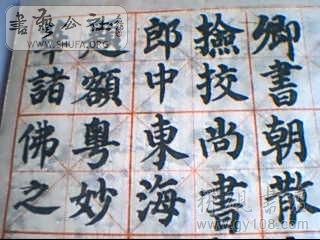 卿書朝散
撿挍尚書
郎中東海
額粤妙
諸佛之
书艺公社
WWW.SHUFA.ORG
www.gy108.com